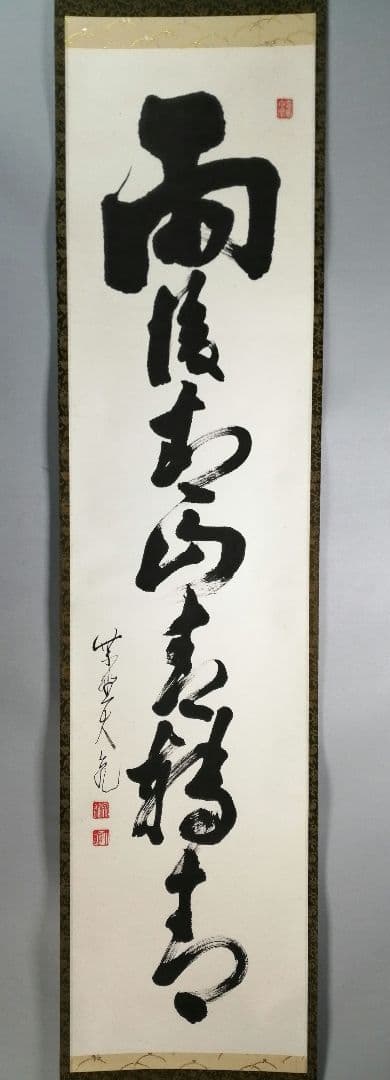 雨後青山青轉青
紫野大亀